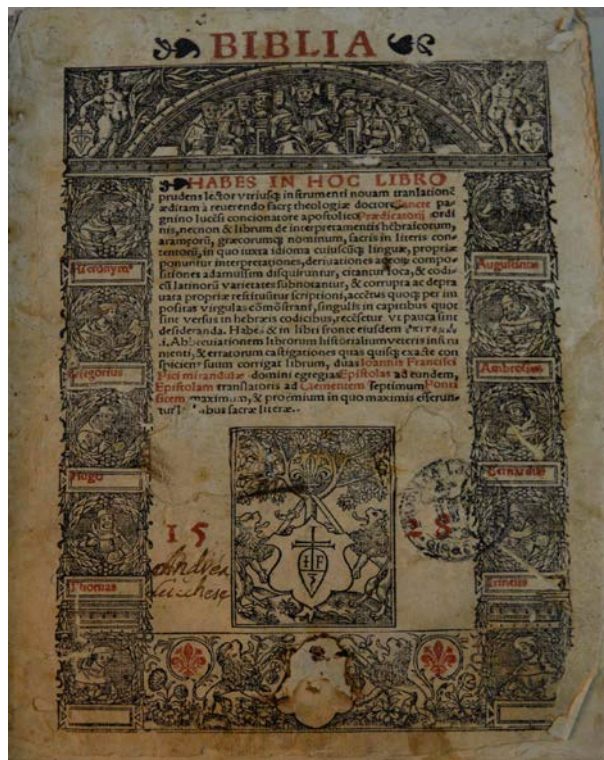 BIBLIA
HABES IN HOC LIBRO
prudens lector vtriusq; instrumenti nouam tranlationē
æditam à reuerendo sacrę theologiæ doctore Sancte pa-
gnino lucēsi concionatore apostolico Prædicatorij ordi
nis, necnon & librum de interpretamentis hebraicorum,
aramęorū, græcorumq; nominum, sacris in literis con-
tentorū, in quo iuxta idioma cuiuscūq; linguæ, propriæ
ponuntur interpretationes,
sitiones adamussim disquiruntur, citantur loca, & codi-
cū latinorū varietates subnotantur, & corrupta ac depra
uata propriæ restituūtur scriptioni, accētus quoq; per im
positas virgulas cōmōstrant, singulis in capitibus quot
sint versus in hebræis codicibus, recēsetur vt pauca sint
desideranda. Habes & in libri fronte eiusdem
Abbreuiationem librorum historialium veteris instru
menti, & erratorum castigationes quas quisq; exacte con
spiciens suum corrigat librum, duas Ioannis Francisci
Pici mirandulæ domini egregias Epistolas ad eundem,
Epistolam translatoris ad Clementem Septimum Ponti
ficem maximum, & proemium in quo maximis efferun-
sacræ literæ.
Hieronym⁹
Augustinus
Gregorius
Ambrosius
Hugo
Bernardus
Thomas
15
8